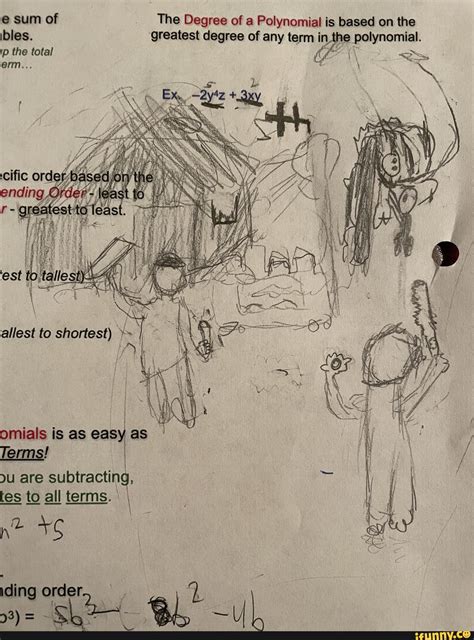 e sum of
bles.
p the total
erm...
The Degree of a Polynomial is based on the
greatest degree of any term in the polynomial.
5 2
Ex. -2y⁴z + 3xy
cific order based on the
ending Order - least to
r - greatest to least.
est to tallest)
allest to shortest)
omials is as easy as
Terms!
ou are subtracting,
tes to all terms.
n² +5
ding order.
b³) = 5b³-( 8b² -4b
ifunny.co